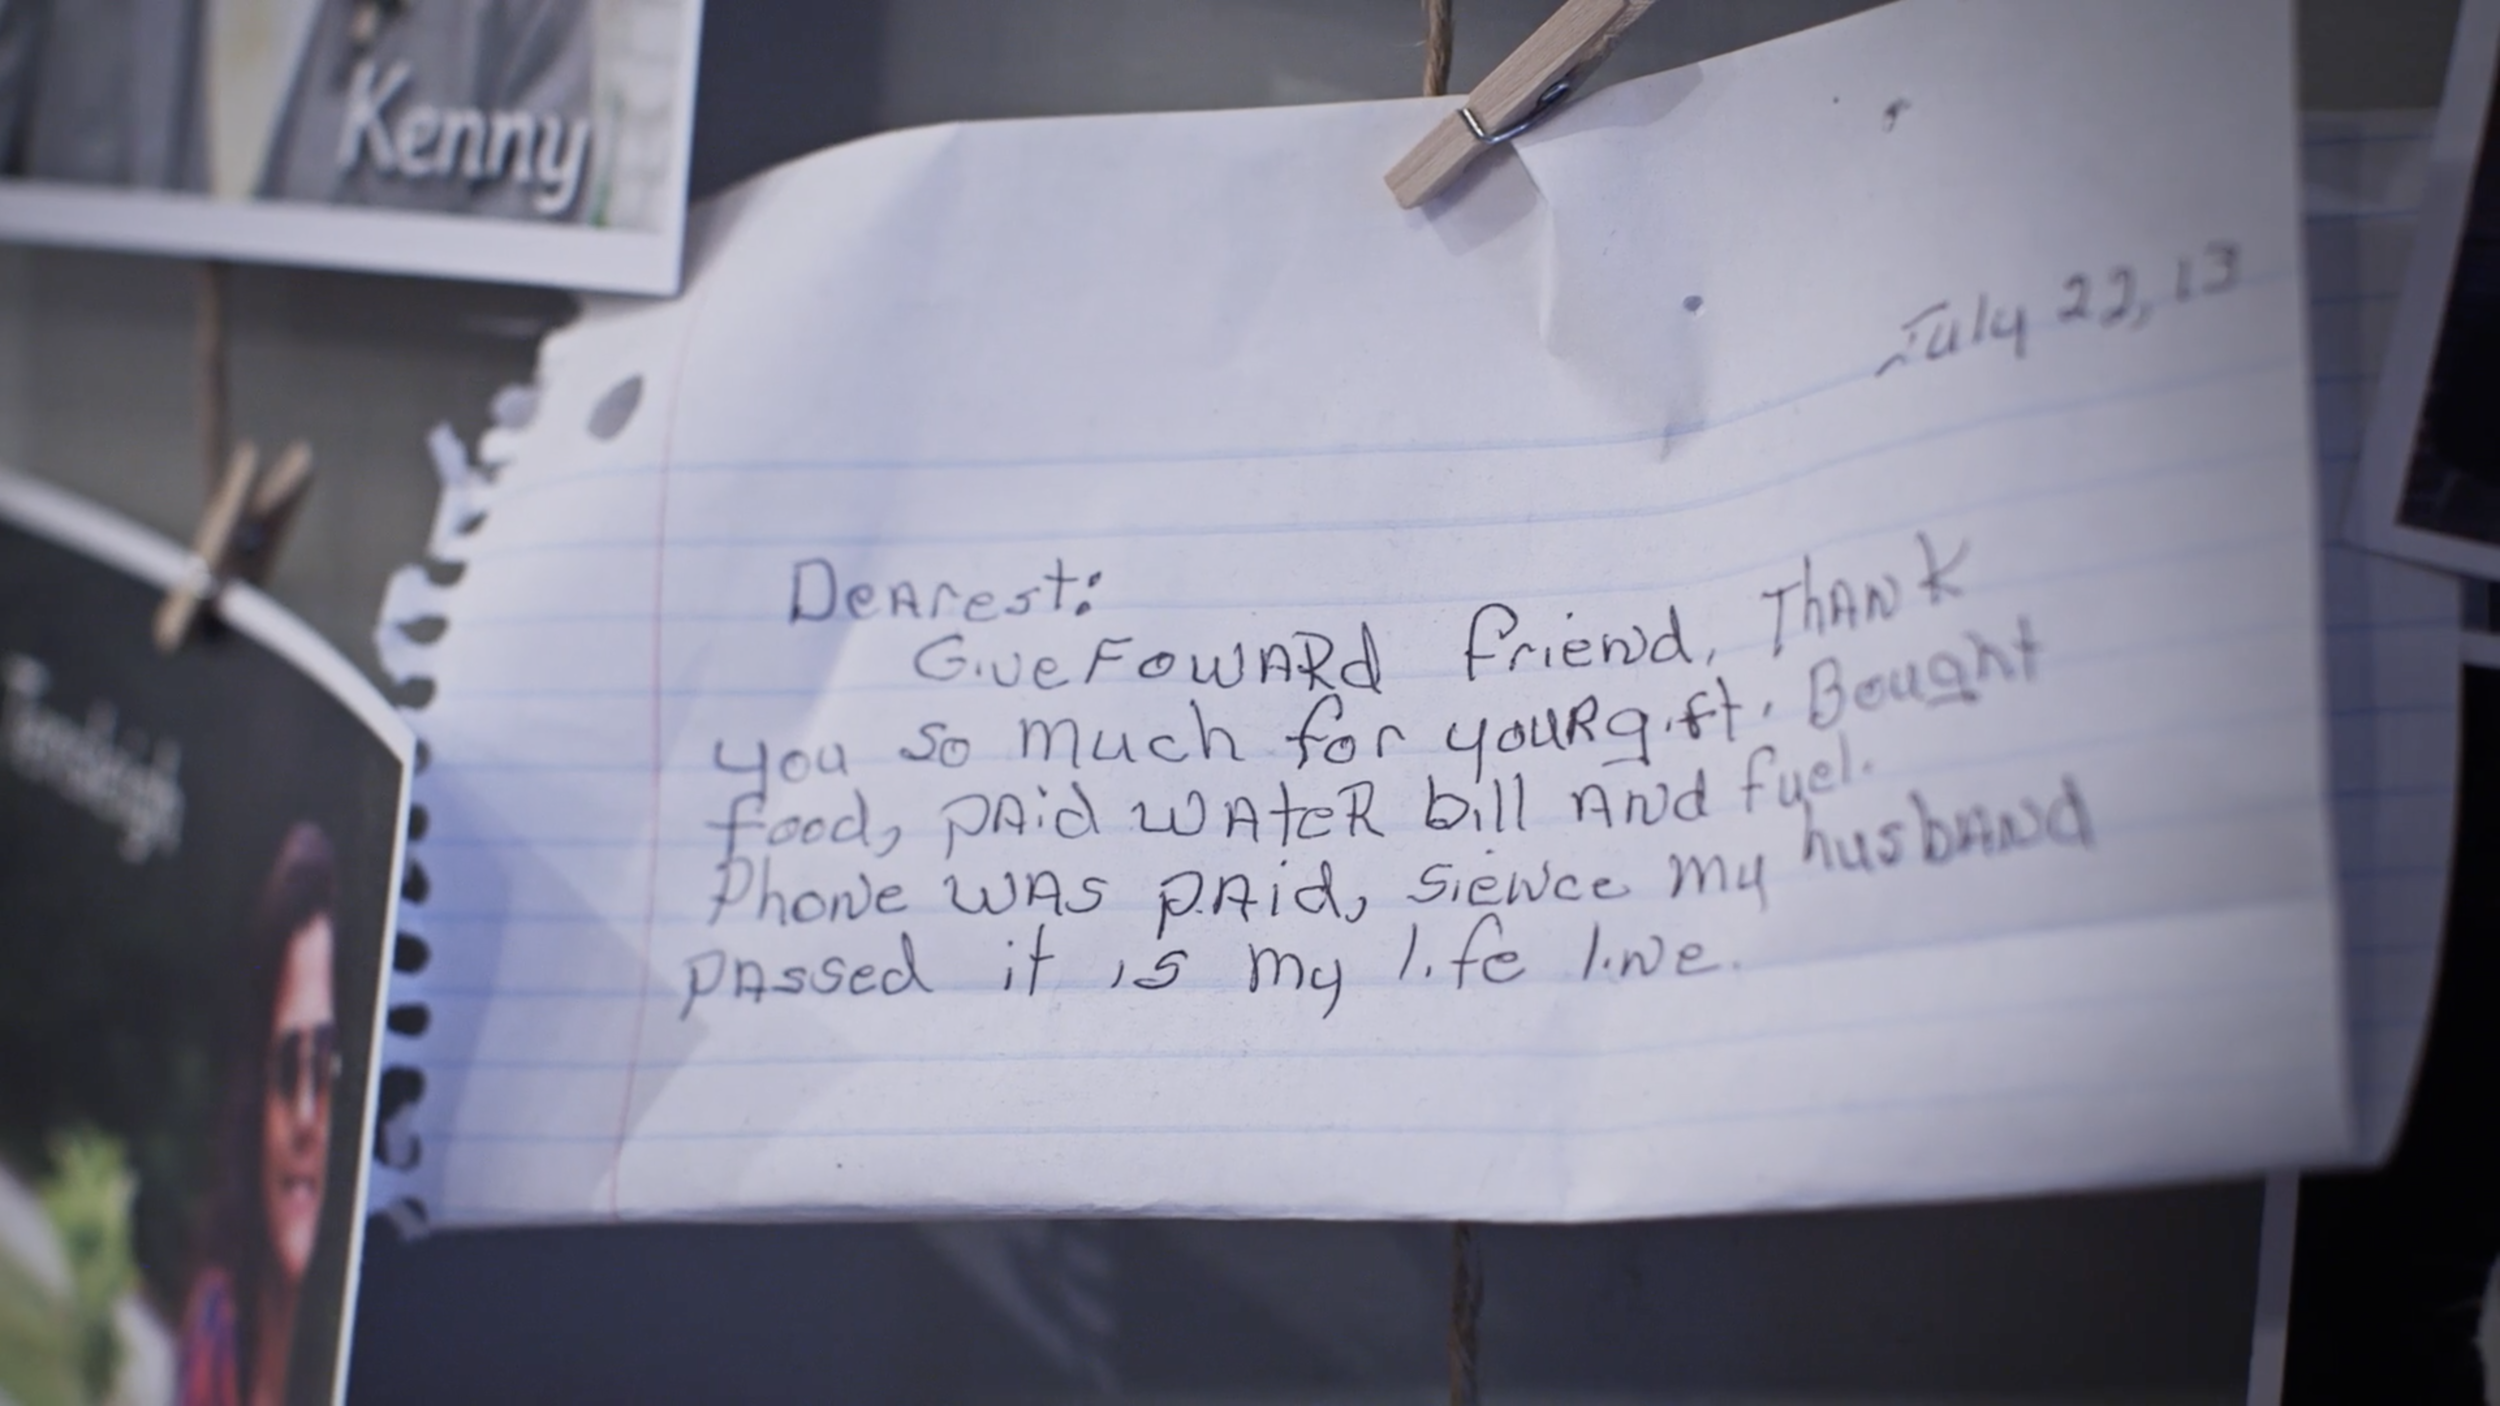 Kenny
July 22, 13
Dearest:
GiveFoward friend, Thank
you so much for your gift. Bought
food, paid water bill and fuel.
Phone was paid, sience my husband
passed it is my life line.